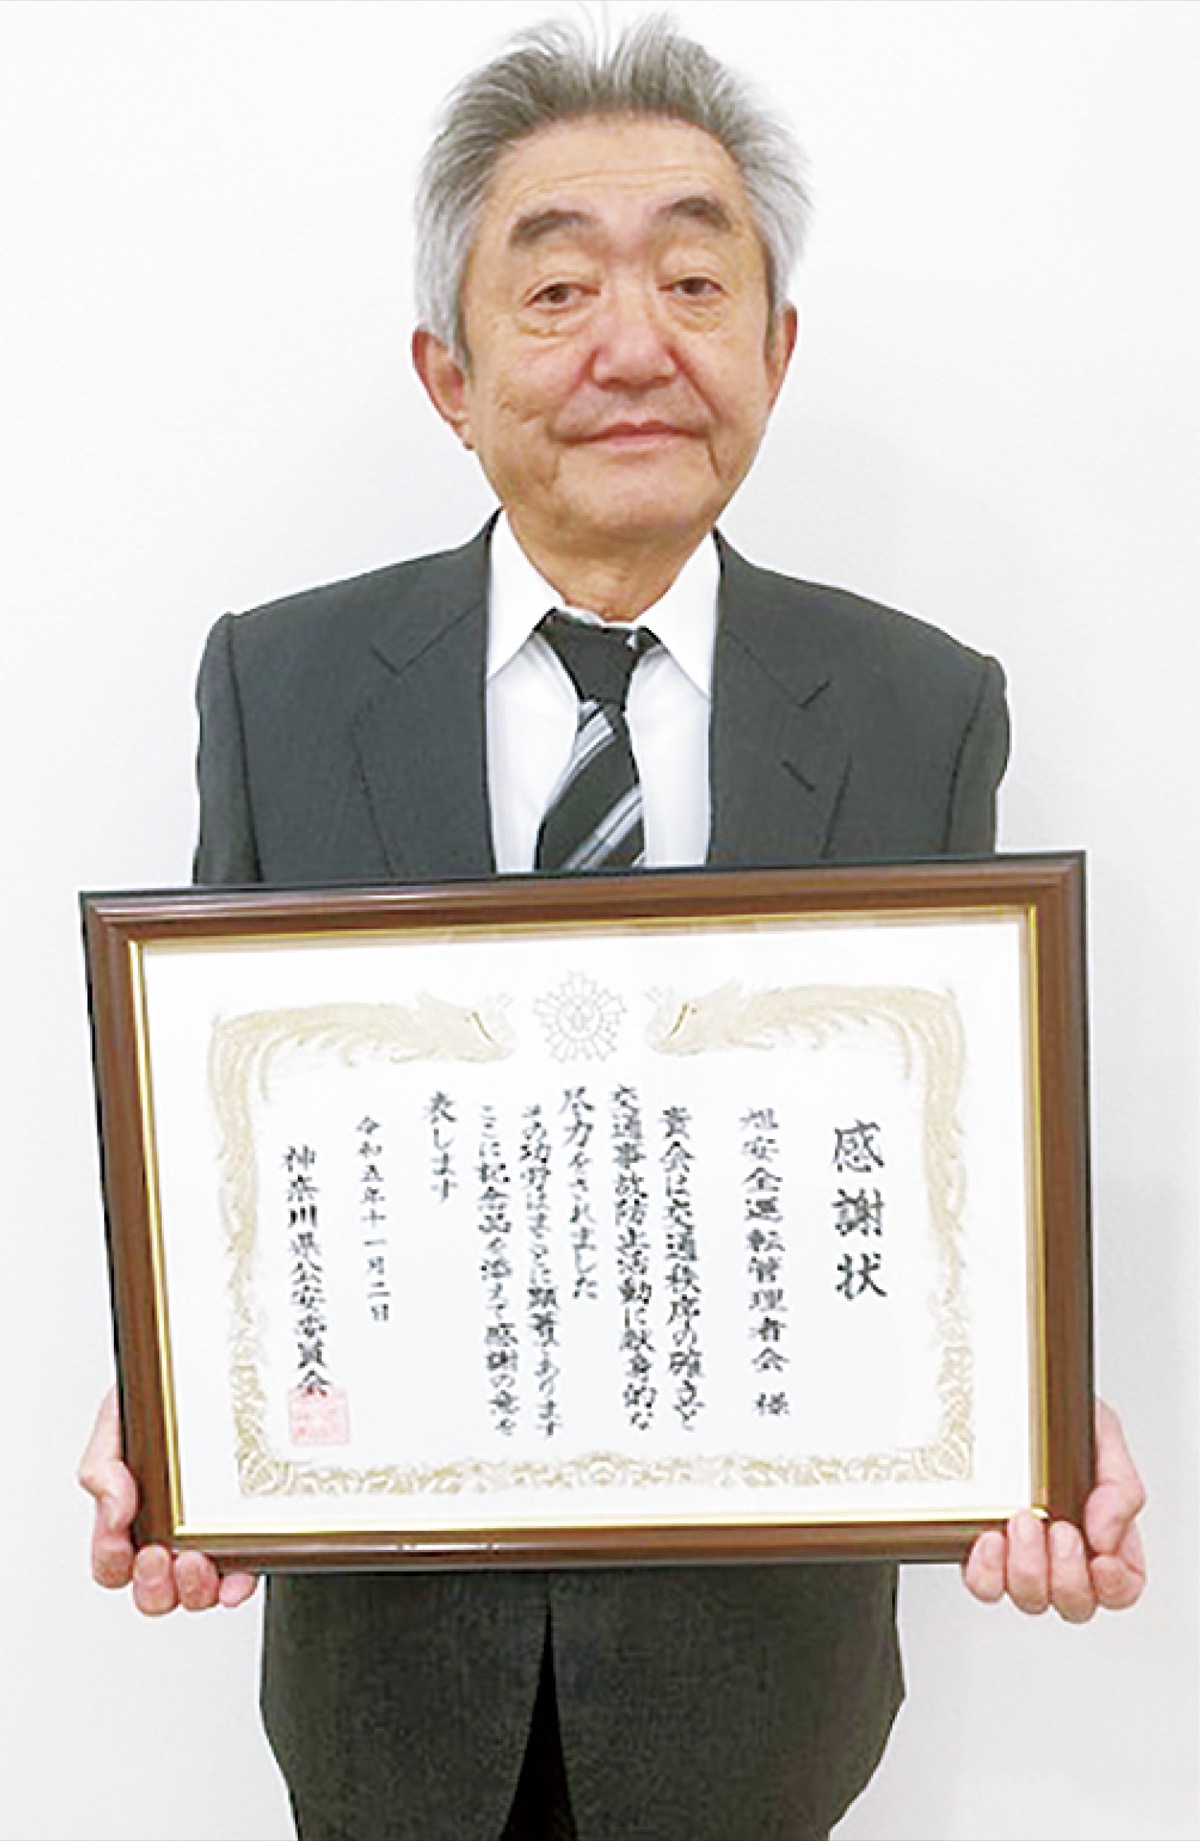 感謝状
旭安全運転管理者会 様
貴会は交通秩序の確立と
交通事故防止活動に献身的な
尽力をされました
その功労はまことに顕著であります
ここに記念品を添えて感謝の意を
表します
令和五年十一月二日
神奈川県公安委員会